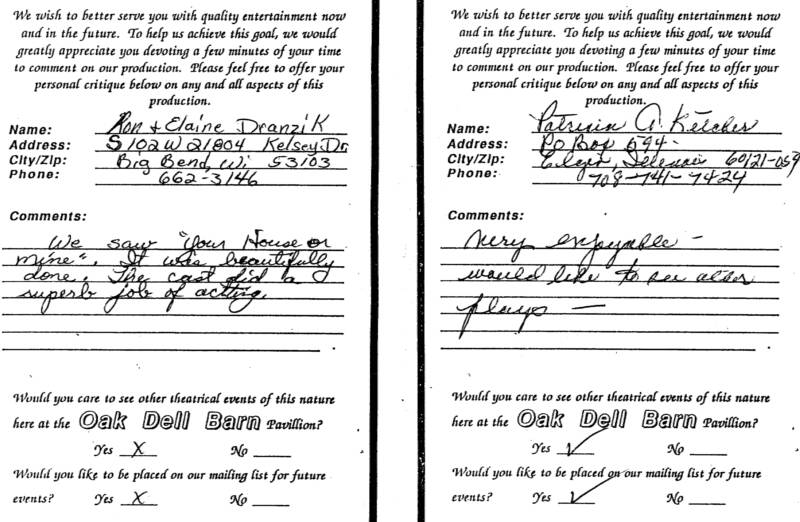 We wish to better serve you with quality entertainment now
and in the future. To help us achieve this goal, we would
greatly appreciate you devoting a few minutes of your time
to comment on our production. Please feel free to offer your
personal critique below on any and all aspects of this
production.
Name: Ron & Elaine Dranzik
Address: S102W21804 Kelsey Dr
City/Zip: Big Bend, Wi 53103
Phone: 662-3146
Comments:
We saw "Your House or
mine". It was beautifully
done. The cast did a
superb job of acting.
Would you care to see other theatrical events of this nature
here at the Oak Dell Barn Pavillion?
Yes X No
Would you like to be placed on our mailing list for future
events? Yes X No
We wish to better serve you with quality entertainment now
and in the future. To help us achieve this goal, we would
greatly appreciate you devoting a few minutes of your time
to comment on our production. Please feel free to offer your
personal critique below on any and all aspects of this
production.
Name: Patricia A. Kelcher
Address: PO Box 594-
City/Zip: Elgin, Illinois 60121-059
Phone: 708-741-7424
Comments:
Very enjoyable -
would like to see other
plays -
Would you care to see other theatrical events of this nature
here at the Oak Dell Barn Pavillion?
Yes ✓ No
Would you like to be placed on our mailing list for future
events? Yes ✓ No